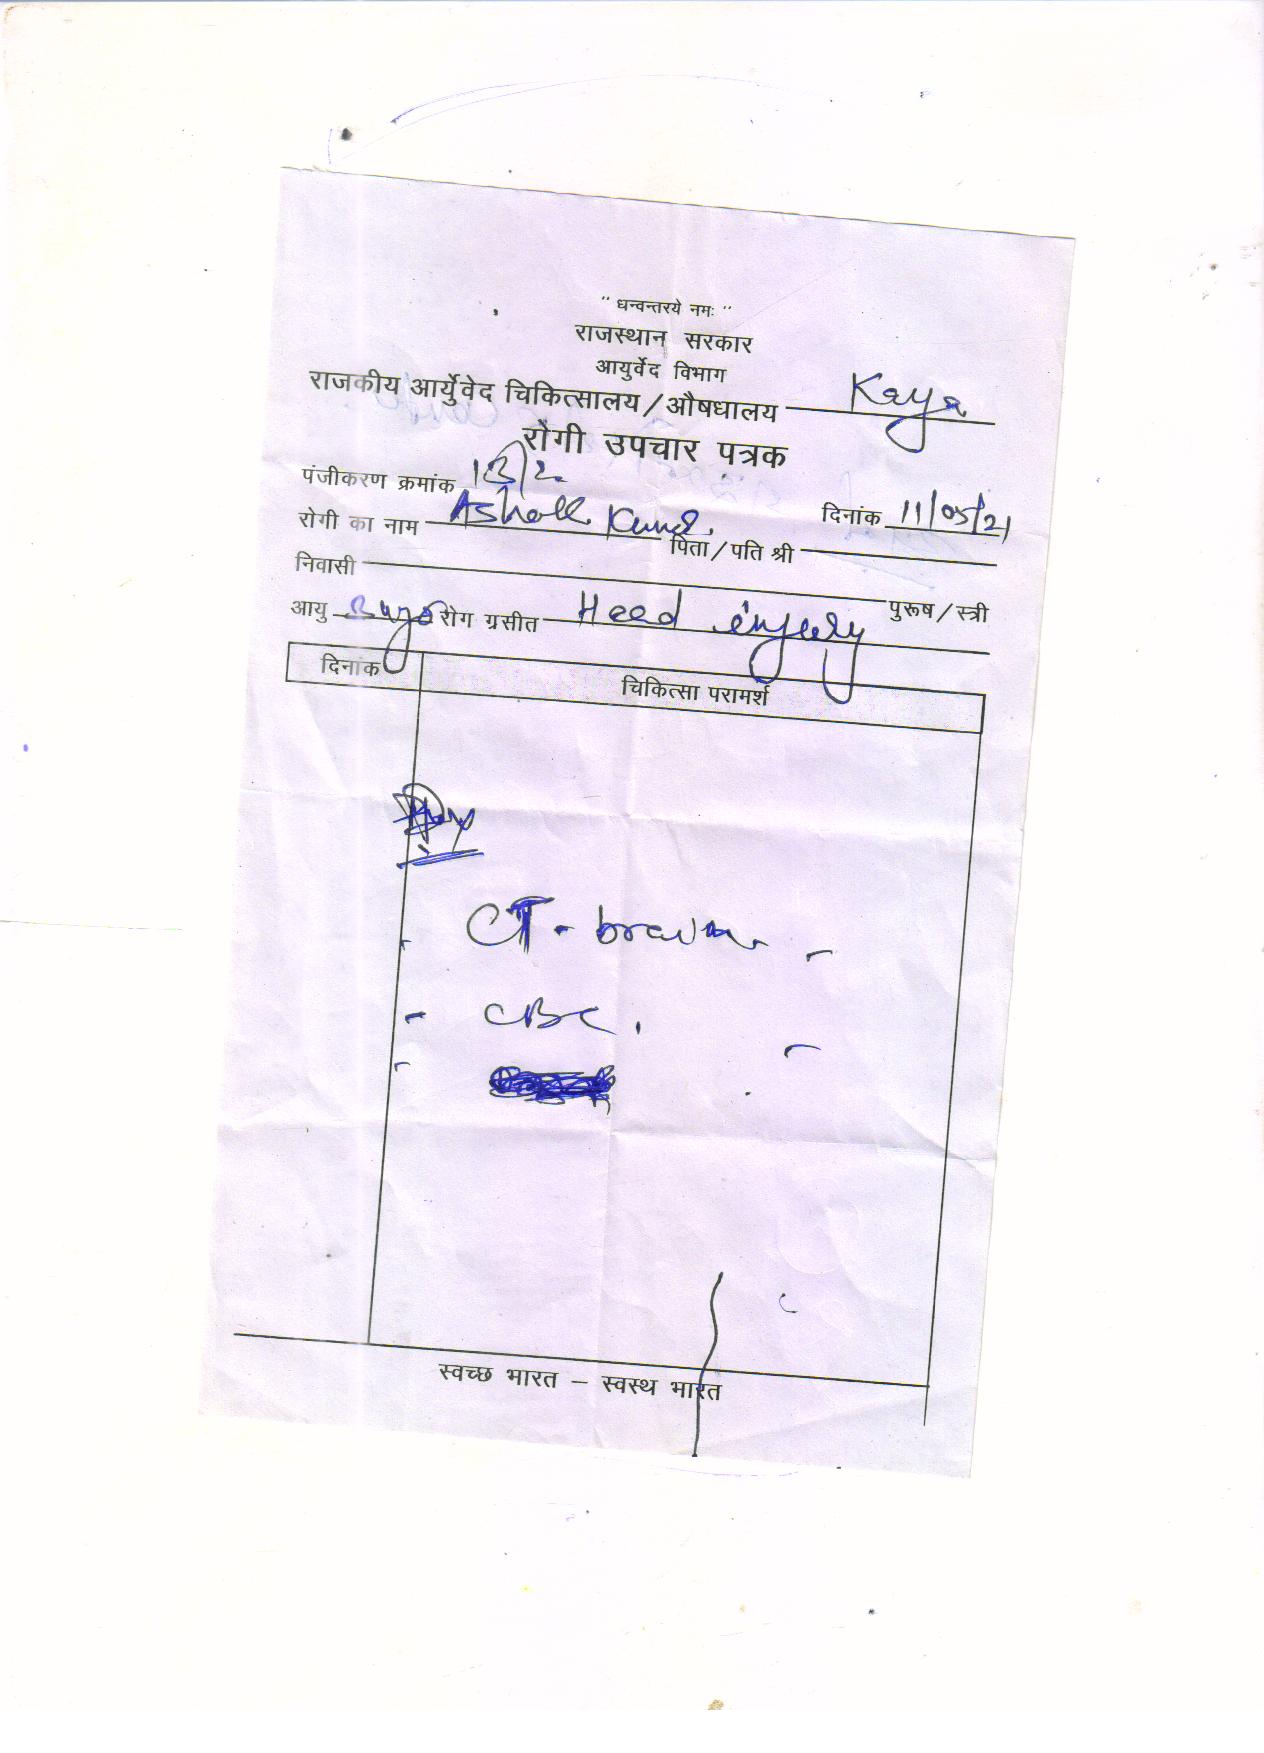 " धन्वन्तरये नमः "
राजस्थान सरकार
आयुर्वेद विभाग
राजकीय आर्युेवेद चिकित्सालय / औषधालय Kaya
रोगी उपचार पत्रक
पंजीकरण क्रमांक
दिनांक 11/05/21
रोगी का नाम Ashok पिता / पति श्री
निवासी पुरूष / स्त्री
आयु रोग ग्रसीत Head injury
दिनांक चिकित्सा परामर्श
CT - brain
- CBC.
स्वच्छ भारत – स्वस्थ भारत